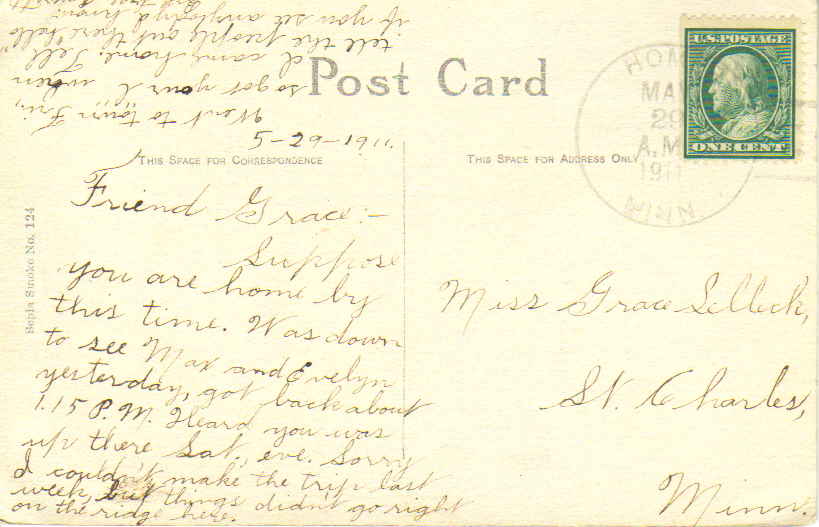 Post Card
U.S. POSTAGE
ONE CENT
HOM
MAY
29
A.M.
1911
MINN.
THIS SPACE FOR CORRESPONDENCE
THIS SPACE FOR ADDRESS ONLY
Sepia Smoke No. 124
5-29-1911.
Friend Grace:-
Suppose
you are home by
this time. Was down
to see Max and Evelyn
yesterday, got back about
1.15 P.M. Heard you was
up there Sat. eve. Sorry
I couldn't make the trip last
week, but things didn't go right
on the ridge here.
Went to town Fri,
so got your L when
I came home. Tell
tell the people out there hello
if you see anybody I know.
Miss Grace Selleck,
St. Charles,
Minn.